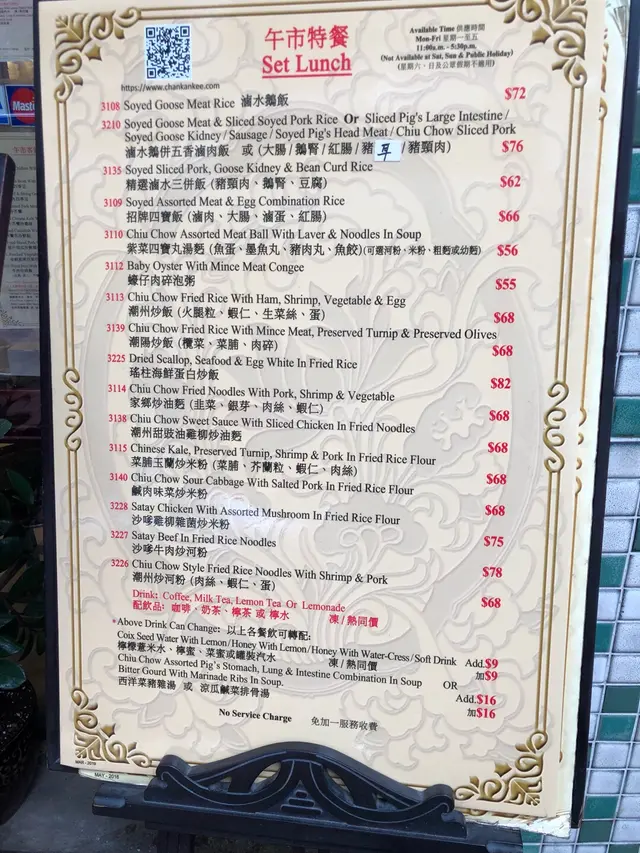 午市特餐
Set Lunch
Available Time 供應時間
Mon-Fri 星期一至五
11:00a.m. - 5:30p.m.
(Not Available at Sat, Sun & Public Holiday)
(星期六、日及公眾假期不適用)
https://www.chankankee.com
3108 Soyed Goose Meat Rice 滷水鵝飯 $72
3210 Soyed Goose Meat & Sliced Soyed Pork Rice Or Sliced Pig's Large Intestine /
Soyed Goose Kidney / Sausage / Soyed Pig's Head Meat / Chiu Chow Sliced Pork
滷水鵝併五香滷肉飯 或 (大腸 / 鵝腎 / 紅腸 / 豬耳 / 豬頸肉) $76
3135 Soyed Sliced Pork, Goose Kidney & Bean Curd Rice
精選滷水三併飯 (豬頸肉、鵝腎、豆腐) $62
3109 Soyed Assorted Meat & Egg Combination Rice
招牌四寶飯 (滷肉、大腸、滷蛋、紅腸) $66
3110 Chiu Chow Assorted Meat Ball With Laver & Noodles In Soup
紫菜四寶丸湯麪 (魚蛋、墨魚丸、豬肉丸、魚餃) (可選河粉、米粉、粗麪或幼麪) $56
3112 Baby Oyster With Mince Meat Congee
蠔仔肉碎泡粥 $55
3113 Chiu Chow Fried Rice With Ham, Shrimp, Vegetable & Egg
潮州炒飯 (火腿粒、蝦仁、生菜絲、蛋) $68
3139 Chiu Chow Fried Rice With Mince Meat, Preserved Turnip & Preserved Olives
潮陽炒飯 (欖菜、菜脯、肉碎) $68
3225 Dried Scallop, Seafood & Egg White In Fried Rice
瑤柱海鮮蛋白炒飯 $82
3114 Chiu Chow Fried Noodles With Pork, Shrimp & Vegetable
家鄉炒油麪 (韭菜、銀芽、肉絲、蝦仁) $68
3138 Chiu Chow Sweet Sauce With Sliced Chicken In Fried Noodles
潮州甜豉油雞柳炒油麪 $68
3115 Chinese Kale, Preserved Turnip, Shrimp & Pork In Fried Rice Flour
菜脯玉蘭炒米粉 (菜脯、芥蘭粒、蝦仁、肉絲) $68
3140 Chiu Chow Sour Cabbage With Salted Pork In Fried Rice Flour
鹹肉味菜炒米粉 $68
3228 Satay Chicken With Assorted Mushroom In Fried Rice Flour
沙嗲雞柳雜菌炒米粉 $75
3227 Satay Beef In Fried Rice Noodles
沙嗲牛肉炒河粉 $78
3226 Chiu Chow Style Fried Rice Noodles With Shrimp & Pork
潮州炒河粉 (肉絲、蝦仁、蛋) $68
Drink: Coffee, Milk Tea, Lemon Tea Or Lemonade
配飲品: 咖啡、奶茶、檸茶 或 檸水 凍 / 熱同價
*Above Drink Can Change: 以上各餐飲可轉配:
Coix Seed Water With Lemon / Honey With Lemon / Honey With Water-Cress / Soft Drink Add.$9
檸檬薏米水、檸蜜、菜蜜或罐裝汽水 凍 / 熱同價 加$9
Chiu Chow Assorted Pig's Stomach, Lung & Intestine Combination In Soup OR
Bitter Gourd With Marinade Ribs In Soup. Add.$16
西洋菜豬雜湯 或 涼瓜鹹菜排骨湯 加$16
No Service Charge 免加一服務收費
MAY - 2016